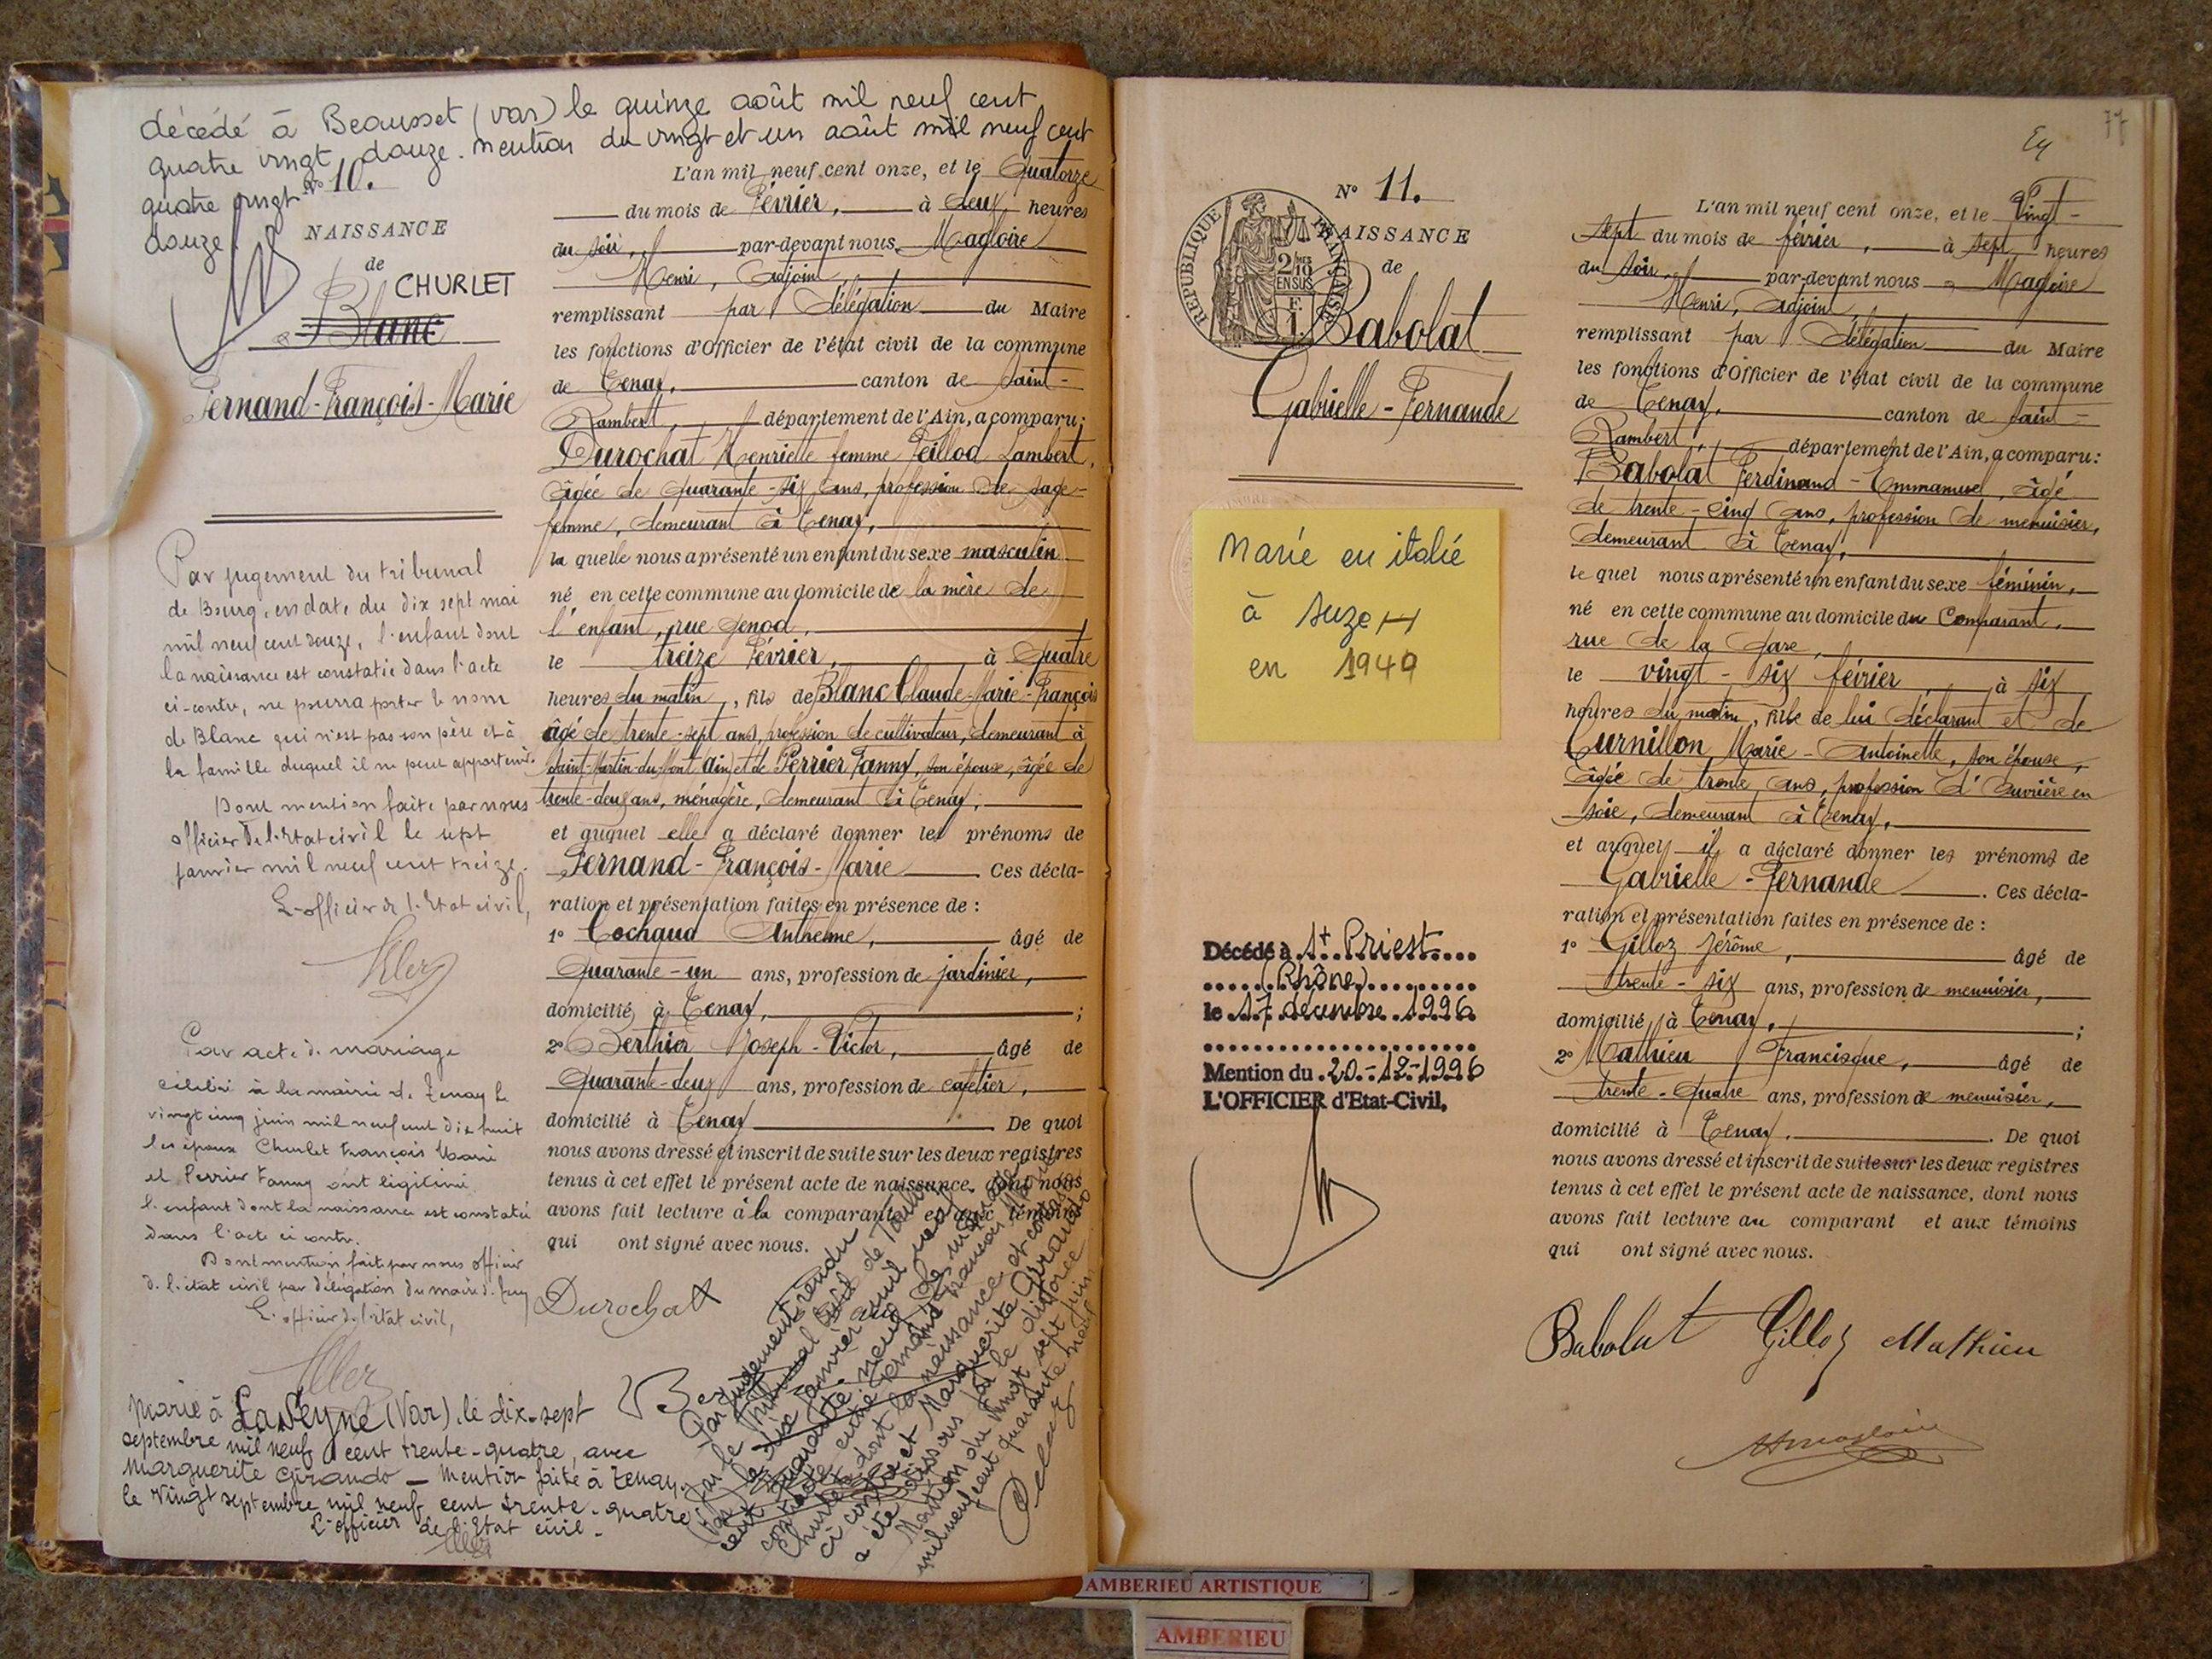 décédé à Beausset (var) le quinze août mil neuf cent
quatre vingt douze. mention du vingt et un août mil neuf cent
quatre vingt
douze.
N° 10.
NAISSANCE
de
CHURLET
Blanc
Fernand-François-Marie
Par jugement du tribunal
de Bourg, en date du dix sept mai
mil neuf cent douze, l'enfant dont
la naissance est constatée dans l'acte
ci-contre, ne pourra porter le nom
de Blanc qui n'est pas son père et à
la famille duquel il ne peut appartenir.
Dont mention faite par nous
officier de l'Etat civil le sept
janvier mil neuf cent treize.
L'officier de l'Etat civil,
Par acte de mariage
célébré à la mairie de Tenay le
vingt cinq juin mil neuf cent dix huit
les époux Churlet François Marie
et Perrier Fanny ont légitimé
l'enfant dont la naissance est constatée
dans l'acte ci contre.
Dont mention faite par nous officier
de l'état civil par délégation du maire de Tenay
L'officier de l'état civil,
Marié à La Seyne (Var), le dix-sept
septembre mil neuf cent trente-quatre, avec
Marguerite Girando — Mention faite à Tenay
le vingt septembre mil neuf cent trente-quatre
L'officier de l'Etat civil.
L'an mil neuf cent onze, et le Quatorze
du mois de Février, à deux heures
du soir, par-devant nous Magloire
Henri, Adjoint
remplissant par Délégation du Maire
les fonctions d'Officier de l'état civil de la commune
de Tenay, canton de Saint-
Rambert, département de l'Ain, a comparu:
Durochat Henriette femme Peillod Lambert,
âgée de quarante-six ans, profession de sage-
femme, demeurant à Tenay,
la quelle nous a présenté un enfant du sexe masculin
né en cette commune au domicile de la mère de
l'enfant, rue Genod,
le treize Février, à quatre
heures du matin, fils de Blanc Claude-Marie-François
âgé de trente-sept ans, profession de cultivateur, demeurant à
Saint-Martin-du-Mont (Ain) et de Perrier Fanny, son épouse, âgée de
trente-deux ans, ménagère, demeurant à Tenay;
et auquel elle a déclaré donner les prénoms de
Fernand-François-Marie Ces décla-
ration et présentation faites en présence de :
1° Cochaud Anthelme, âgé de
Quarante-un ans, profession de jardinier,
domicilié à Tenay, ;
2° Berthier Joseph-Victor, âgé de
Quarante-deux ans, profession de cafetier,
domicilié à Tenay De quoi
nous avons dressé et inscrit de suite sur les deux registres
tenus à cet effet le présent acte de naissance, dont nous
avons fait lecture à la comparante et aux témoins
qui ont signé avec nous.
Durochat
Par jugement rendu
par le Tribunal Civil de Toulon
(Var) le dix janvier mil neuf
cent quarante neuf, le mariage
contracté entre Fernand François Marie
Churlet dont la naissance est constatée
ci contre et Marguerite Girando
a été dissous par le divorce
Mention du vingt sept juin
mil neuf cent quarante neuf
77
N° 11.
NAISSANCE
de
REPUBLIQUE FRANÇAISE
2/10 EN SUS
Babolat
Gabrielle-Fernande
Marié en italié
à Suze
en 1949
Décédé à St Priest
(Rhône)
le 17 décembre 1996
Mention du 20-12-1996
L'OFFICIER d'Etat-Civil,
L'an mil neuf cent onze, et le Vingt-
sept du mois de février, à sept heures
du soir, par-devant nous Magloire
Henri, Adjoint,
remplissant par Délégation du Maire
les fonctions d'Officier de l'état civil de la commune
de Tenay, canton de Saint-
Rambert, département de l'Ain, a comparu:
Babolat Ferdinand-Emmanuel, âgé
de trente-cinq ans, profession de menuisier,
demeurant à Tenay,
le quel nous a présenté un enfant du sexe féminin,
né en cette commune au domicile du Comparant,
rue de la Gare,
le vingt-six février à six
heures du matin, fille de lui déclarant et de
Curnillon Marie-Antoinette, son épouse,
âgée de trente ans, profession d'Ouvrière en
soie, demeurant à Tenay,
et auquel il a déclaré donner les prénoms de
Gabrielle-Fernande . Ces décla-
ration et présentation faites en présence de :
1° Gilloz Jérôme, âgé de
trente-six ans, profession de menuisier,
domicilié à Tenay, ;
2° Mathieu Francisque, âgé de
trente-quatre ans, profession de menuisier,
domicilié à Tenay. De quoi
nous avons dressé et inscrit de suite sur les deux registres
tenus à cet effet le présent acte de naissance, dont nous
avons fait lecture au comparant et aux témoins
qui ont signé avec nous.
Babolat Gilloz Mathieu
AMBERIEU ARTISTIQUE
AMBERIEU